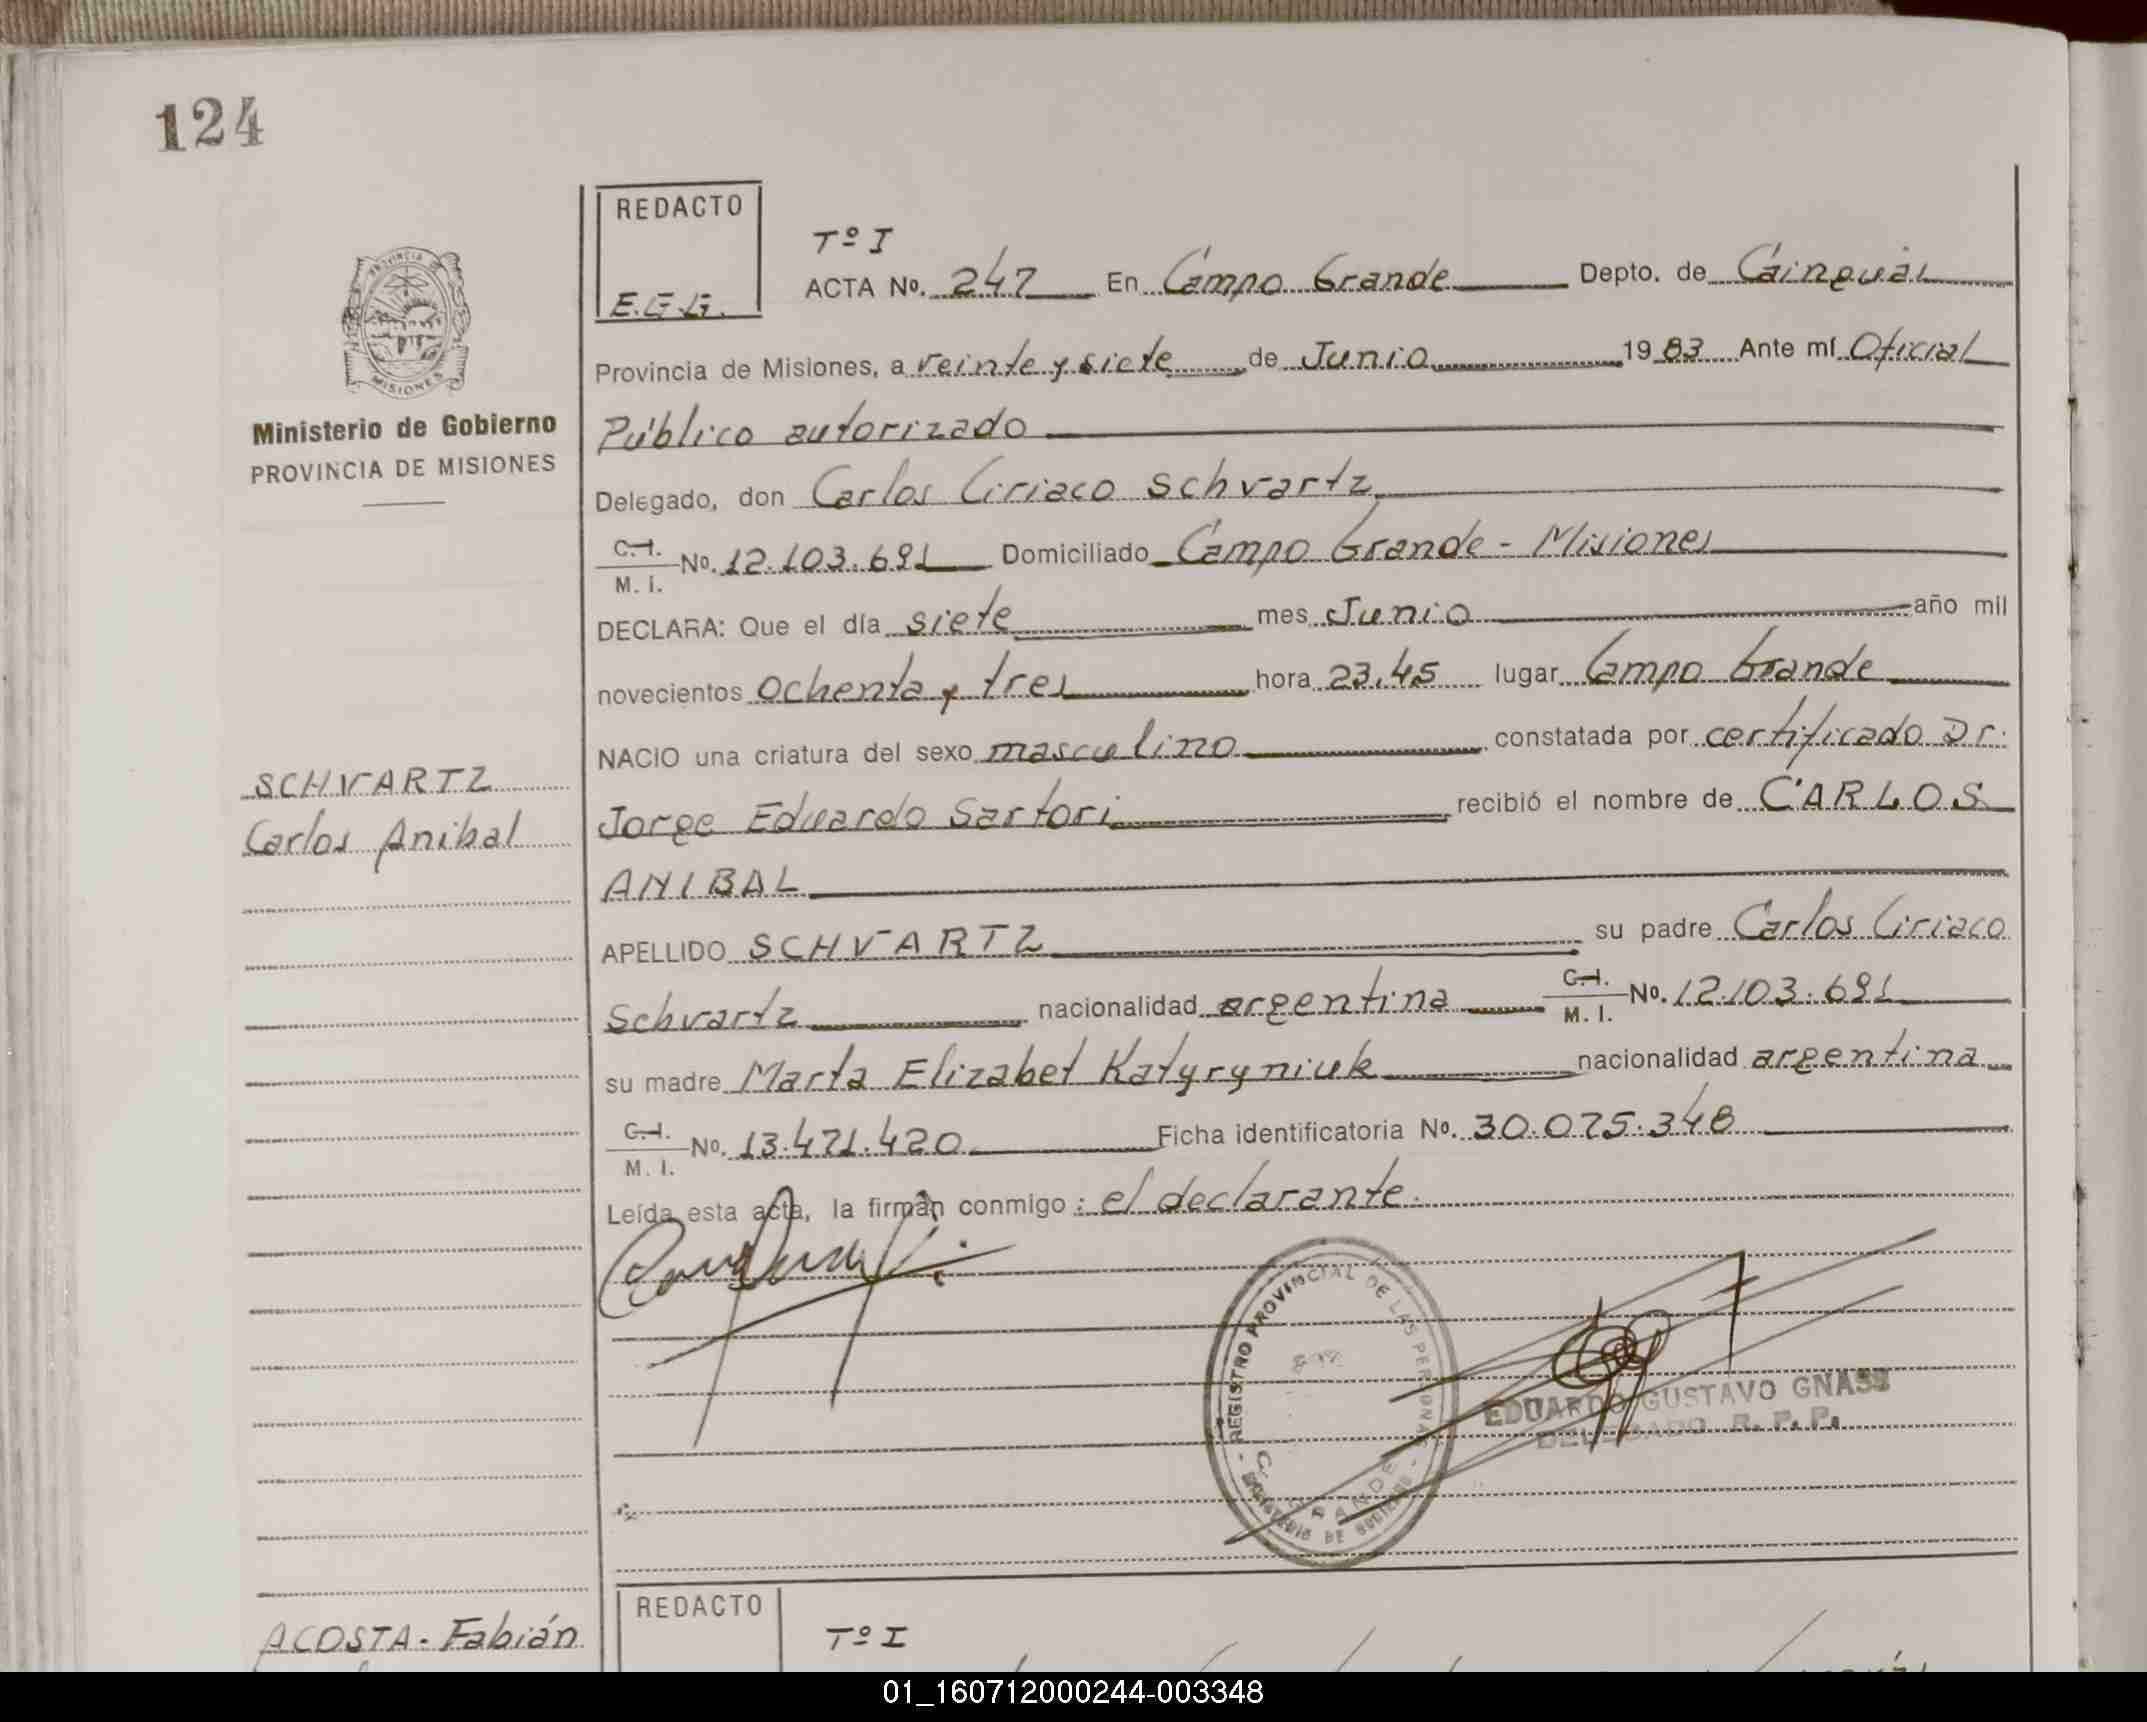 124
REDACTO
E.G.G.
Tº I
ACTA Nº. 247 En Campo Grande Depto. de Cainguás
Provincia de Misiones, a veinte y siete de Junio 1983 Ante mí Oficial
Ministerio de Gobierno
PROVINCIA DE MISIONES
Público autorizado
Delegado, don Carlos Ciriaco Schvartz
C.I. M. I. Nº. 12.103.691 Domiciliado Campo Grande - Misiones
DECLARA: Que el día siete mes Junio año mil
novecientos ochenta y tres hora 23,45 lugar Campo Grande
NACIO una criatura del sexo masculino constatada por certificado Dr.
SCHVARTZ
Carlos Anibal
Jorge Eduardo Sartori recibió el nombre de CARLOS
ANIBAL
APELLIDO SCHVARTZ su padre Carlos Ciriaco
Schvartz nacionalidad argentina C.I. M. I. Nº. 12.103.691
su madre Marta Elizabet Katyryniuk nacionalidad argentina
C.I. M. I. Nº. 13.471.420 Ficha identificatoria Nº. 30.075.348
Leída esta acta, la firman conmigo: el declarante.
REGISTRO PROVINCIAL DE LAS PERSONAS
C. GRANDE
MINISTERIO DE GOBIERNO
EDUARDO GUSTAVO GNASS
DELEGADO R. P. P.
REDACTO
Tº I
ACOSTA - Fabián
01_160712000244-003348